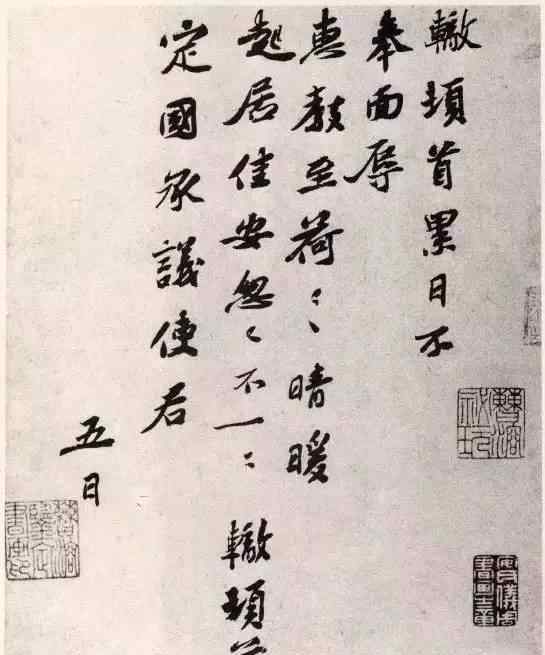 轍頓首累日不
奉面辱
惠教至荷〻晴暖
起居佳安怱〻不一〻轍頓首
定國承議使君
五日